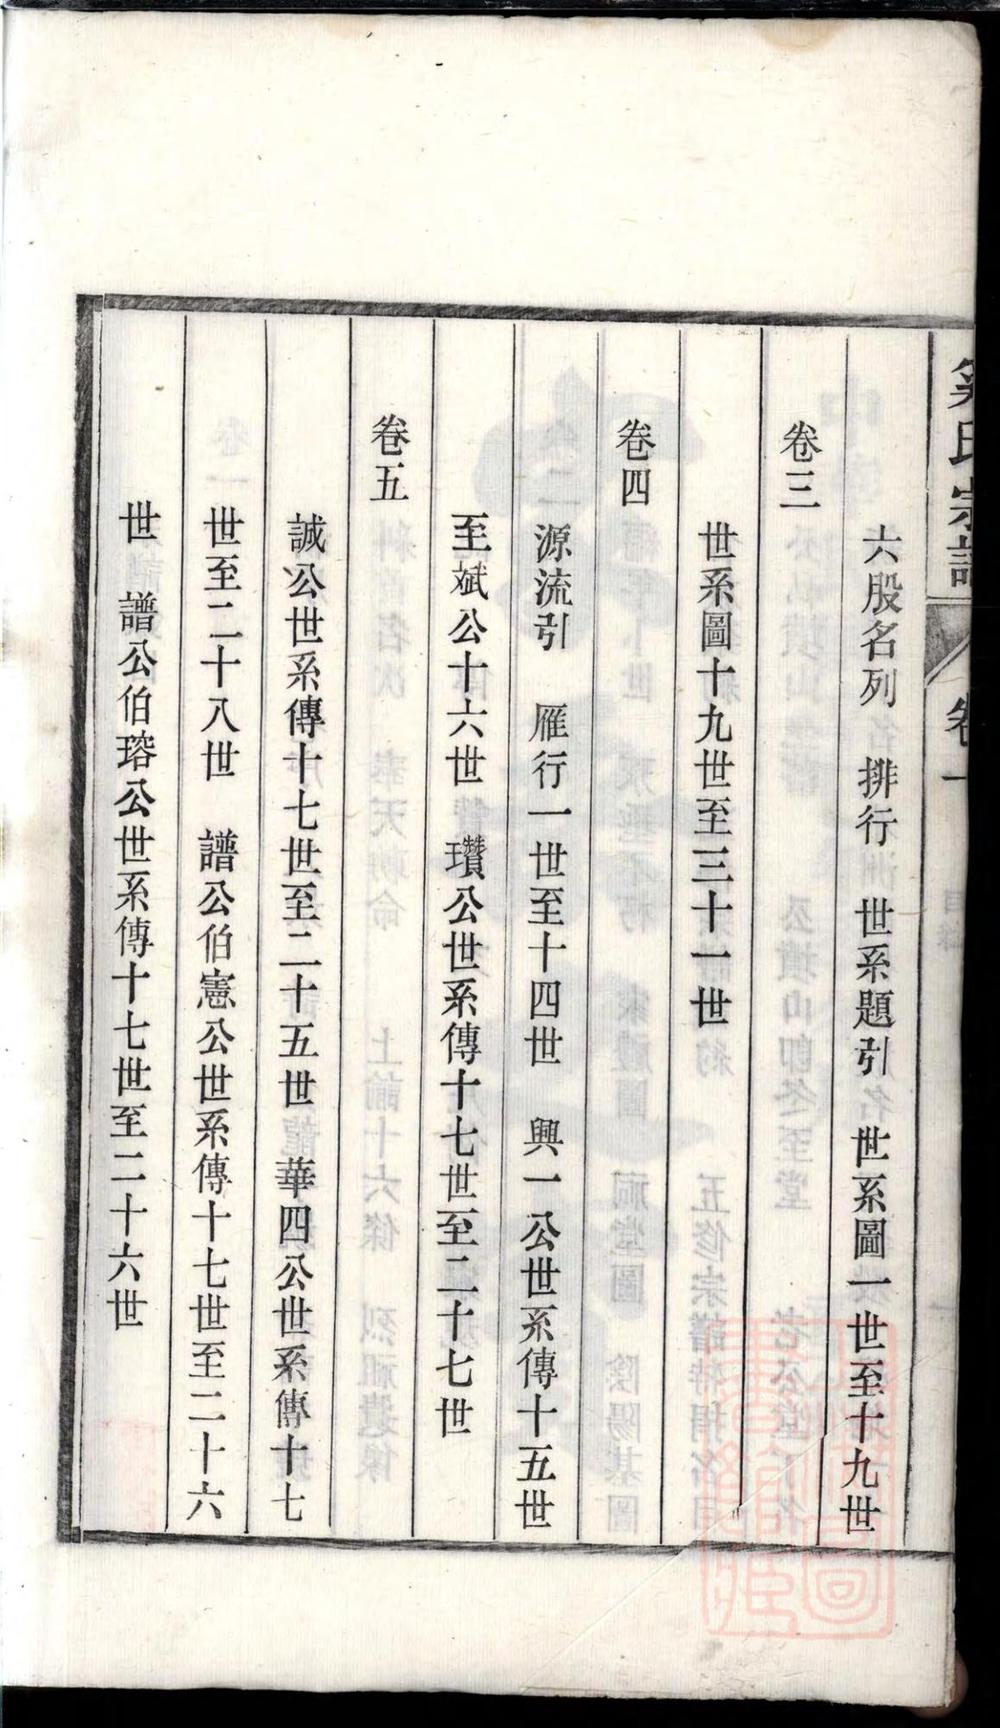 氏宗譜 卷一
六股名列 排行 世系題引 世系圖一世至十九世
卷三
世系圖十九世至三十一世
卷四
源流引 雁行一世至十四世 興一公世系傳十五世
至斌公十六世 瓚公世系傳十七世至二十七世
卷五
誠公世系傳十七世至二十五世 華四公世系傳十七
世至二十八世 譜公伯憲公世系傳十七世至二十六
世 譜公伯瑢公世系傳十七世至二十六世